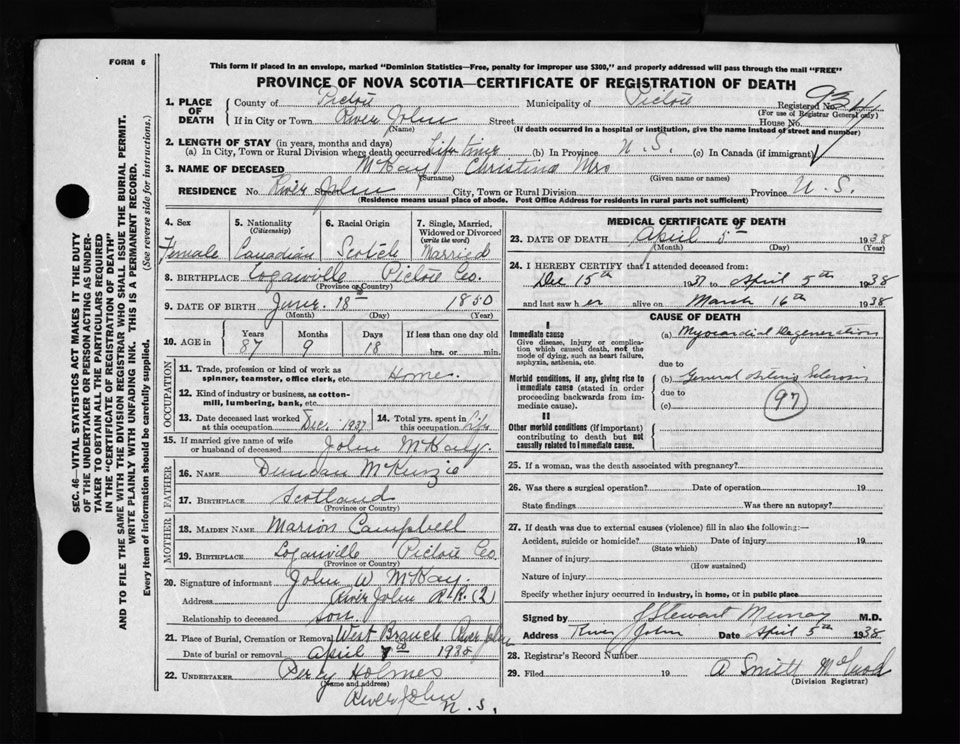 FORM 6
This form if placed in an envelope, marked "Dominion Statistics—Free, penalty for improper use $300," and properly addressed will pass through the mail "FREE"
PROVINCE OF NOVA SCOTIA—CERTIFICATE OF REGISTRATION OF DEATH
SEC. 46—VITAL STATISTICS ACT MAKES IT THE DUTY
OF THE UNDERTAKER OR PERSON ACTING AS UNDER-
TAKER TO OBTAIN ALL THE PARTICULARS REQUIRED
IN THE "CERTIFICATE OF REGISTRATION OF DEATH"
AND TO FILE THE SAME WITH THE DIVISION REGISTRAR WHO SHALL ISSUE THE BURIAL PERMIT.
WRITE PLAINLY WITH UNFADING INK. THIS IS A PERMANENT RECORD.
Every item of information should be carefully supplied. (See reverse side for instructions.)
1. PLACE OF DEATH County of Pictou Municipality of Pictou Registered No. 934
(For use of Registrar General only)
If in City or Town River John Street House No.
(Name) (If death occurred in a hospital or institution, give the name instead of street and number)
2. LENGTH OF STAY (in years, months and days)
(a) In City, Town or Rural Division where death occurred Life time (b) In Province N. S. (c) In Canada (if immigrant)
3. NAME OF DECEASED McKay Christina Mrs
(Surname) (Given name or names)
RESIDENCE No. River John Street City, Town or Rural Division Province N. S.
(Residence means usual place of abode. Post Office Address for residents in rural parts not sufficient)
4. Sex 5. Nationality (Citizenship) 6. Racial Origin 7. Single, Married, Widowed or Divorced (write the word)
Female Canadian Scotch Married
8. BIRTHPLACE Loganville Pictou Co.
(Province or Country)
9. DATE OF BIRTH June 18 1850
(Month) (Day) (Year)
10. AGE in Years Months Days If less than one day old
87 9 18 hrs. or min.
OCCUPATION
11. Trade, profession or kind of work as spinner, teamster, office clerk, etc. Home.
12. Kind of industry or business, as cotton-mill, lumbering, bank, etc.
13. Date deceased last worked at this occupation Dec. 1937 14. Total yrs. spent in this occupation Life
15. If married give name of wife or husband of deceased John McKay.
FATHER
16. NAME Duncan McKenzie
17. BIRTHPLACE Scotland
(Province or Country)
MOTHER
18. MAIDEN NAME Marion Campbell
19. BIRTHPLACE Loganville Pictou Co.
(Province or Country)
20. Signature of informant John W McKay.
Address River John R.R. (2)
Relationship to deceased Son.
21. Place of Burial, Cremation or Removal West Branch River John
Date of burial or removal April 7 1938
22. UNDERTAKER Percy Holmes
(Name and address)
River John N. S.
MEDICAL CERTIFICATE OF DEATH
23. DATE OF DEATH April 5th 1938
(Month) (Day) (Year)
24. I HEREBY CERTIFY that I attended deceased from:
Dec 15th 1937 to April 5th 1938
and last saw her alive on March 16th 1938
CAUSE OF DEATH
I
Immediate cause
Give disease, injury or complication which caused death, not the mode of dying, such as heart failure, asphyxia, asthenia, etc.
(a) Myocardial Degeneration
due to
Morbid conditions, if any, giving rise to immediate cause (stated in order proceeding backwards from immediate cause).
(b) General Arterio Sclerosis
due to
(c)
97
II
Other morbid conditions (if important) contributing to death but not causally related to immediate cause.
25. If a woman, was the death associated with pregnancy?
26. Was there a surgical operation? Date of operation 19
State findings Was there an autopsy?
27. If death was due to external causes (violence) fill in also the following:—
Accident, suicide or homicide? Date of injury 19
(State which)
Manner of injury
(How sustained)
Nature of injury
Specify whether injury occurred in industry, in home, or in public place
Signed by J Stewart Murray M.D.
Address River John Date April 5th 1938
28. Registrar's Record Number
29. Filed 19 A Smith McLeod
(Division Registrar)